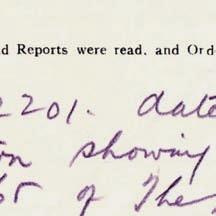 d Reports were read, and Ord-
2201. date
on showing
65 of The